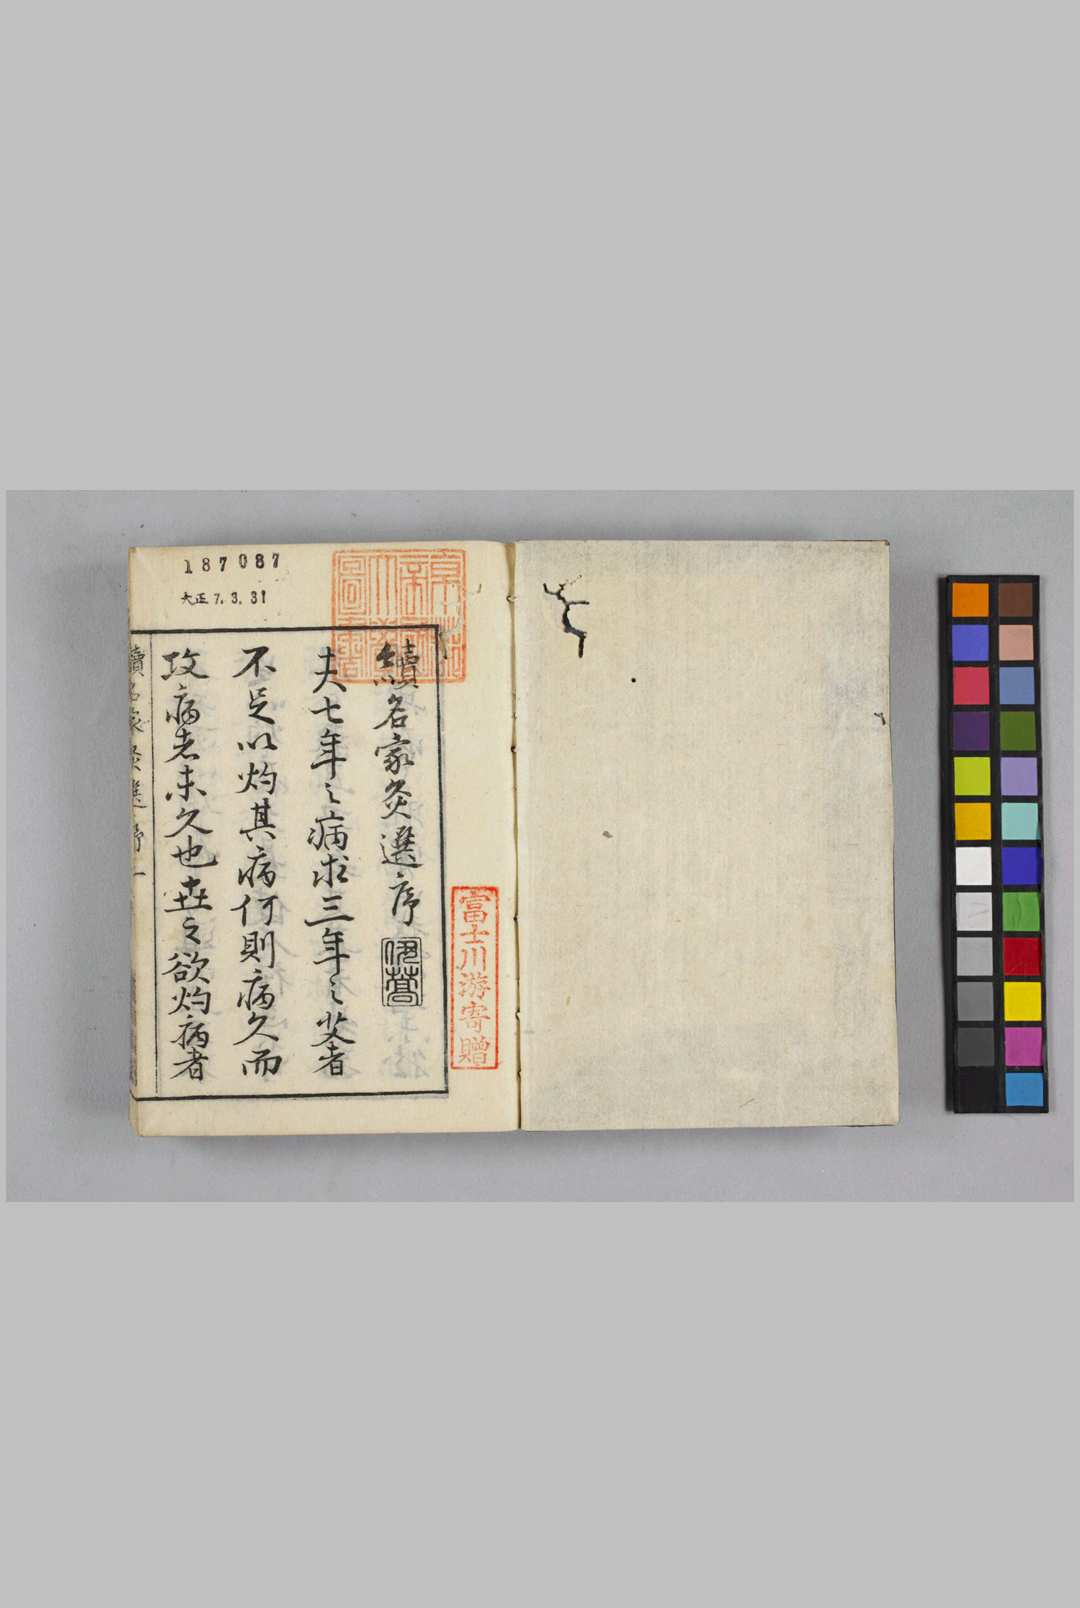 187087
大正7.3.31
京都帝國大學圖書
富士川游寄贈
續名家灸選序
夫七年之病求三年之艾者
不足以灼其病何則病久而
攻病者未久也世之欲灼病者
續名家灸選 序 一